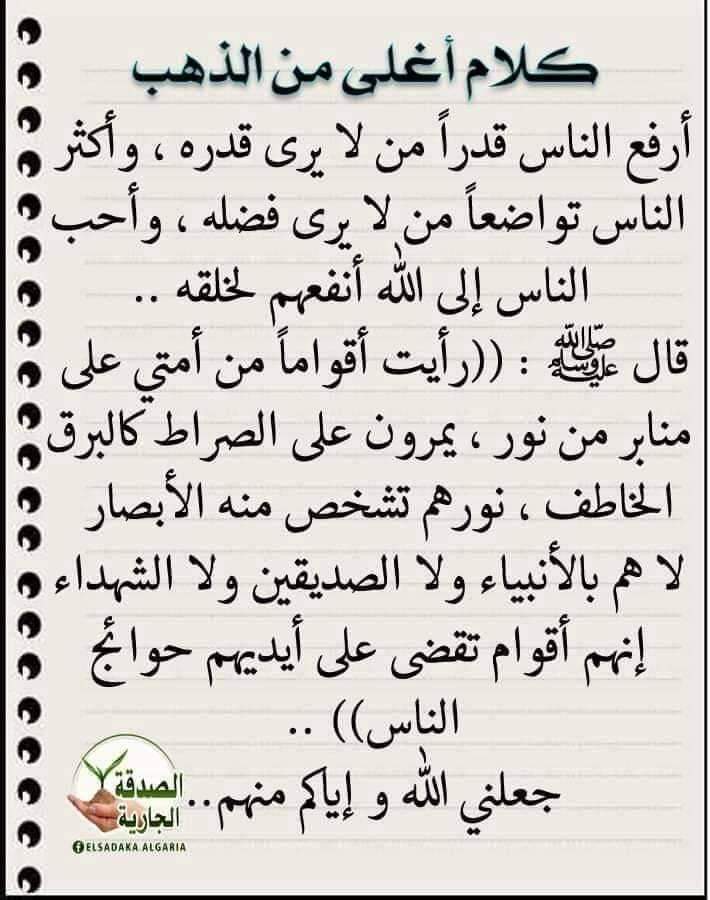 كلام أغلى من الذهب
أرفع الناس قدراً من لا يرى قدره ، وأكثر
الناس تواضعاً من لا يرى فضله ، وأحب
الناس إلى الله أنفعهم لخلقه ..
قال ﷺ : ((رأيت أقواماً من أمتي على
منابر من نور ، يمرون على الصراط كالبرق
الخاطف ، نورهم تشخص منه الأبصار
لا هم بالأنبياء ولا الصديقين ولا الشهداء
إنهم أقوام تقضى على أيديهم حوائج
الناس)) ..
جعلني الله و إياكم منهم..
الصدقة
الجارية
ELSADAKA ALGARIA